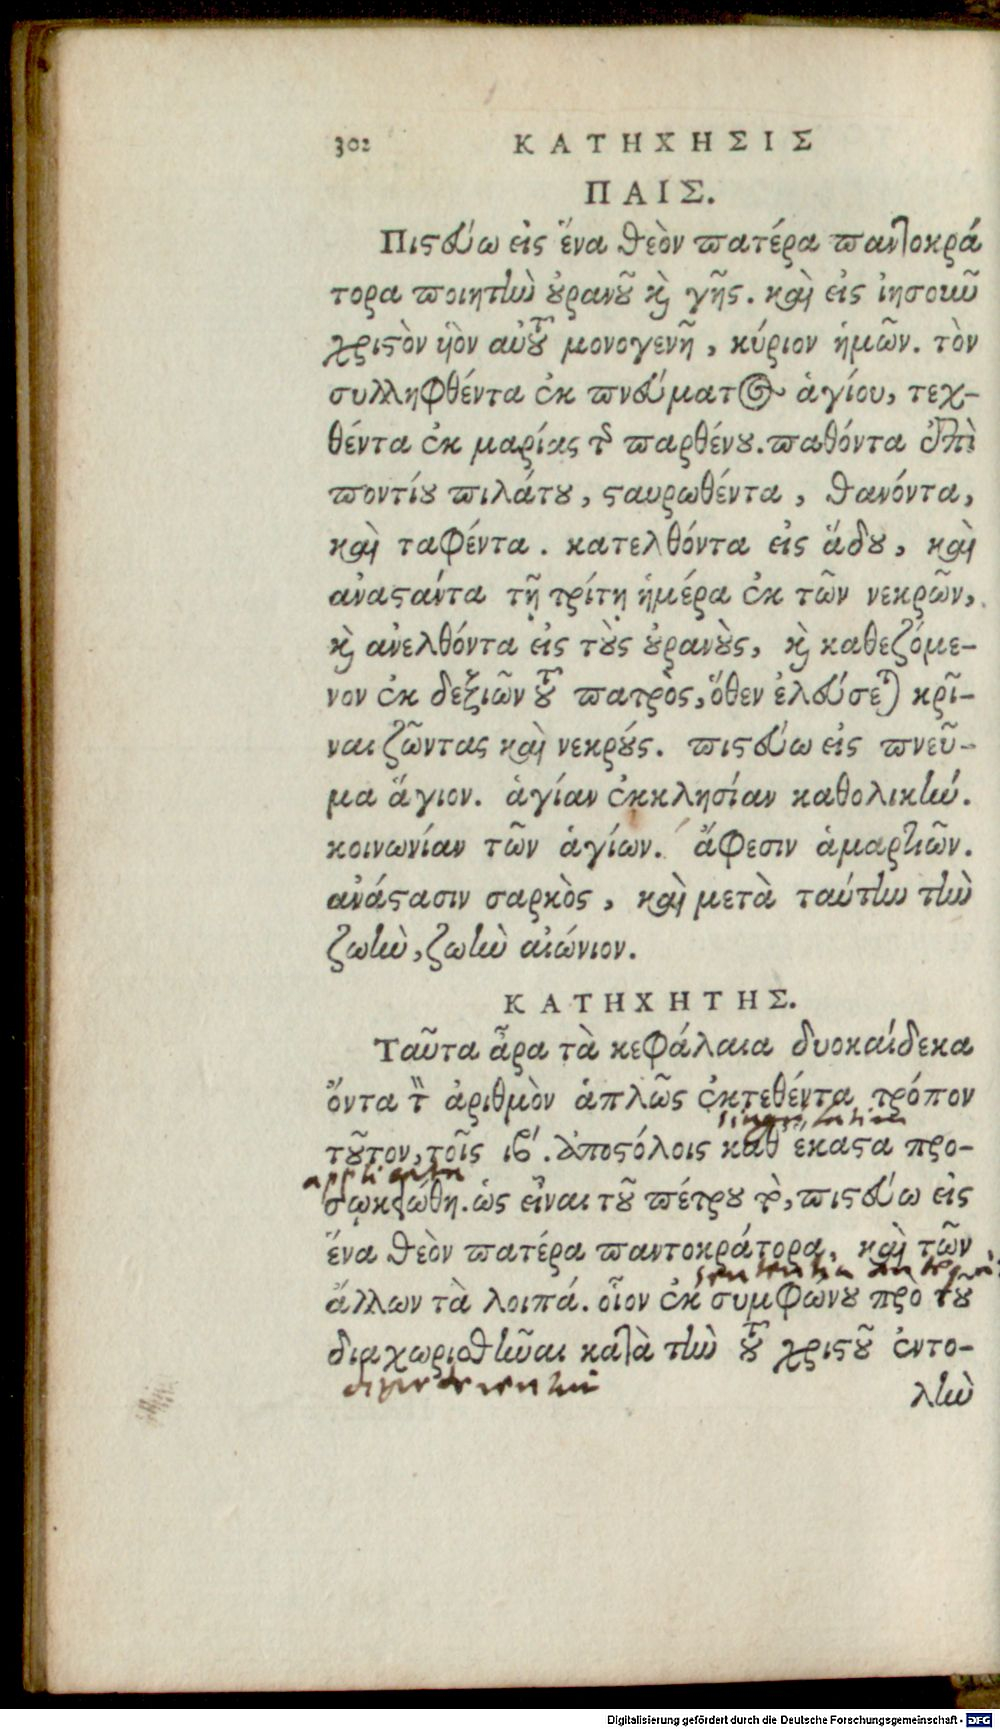 302 ΚΑΤΗΧΗΣΙΣ
ΠΑΙΣ.
Πιϛεύω εἰς ἕνα θεὸν πατέρα παντοκρά
τορα ποιητὴν ȣ̓ρανȣ͂ κὴ γῆς. καὶ εἰς ἰησοιῦ
χριϛὸν ὑὸν αὐτȣ͂ μονογενῆ, κύριον ἡμῶν. τὸν
συλληφθέντα ἐκ πνεύματος ἁγίου, τεχ-
θέντα ἐκ μαρίας τῆς παρθένȣ. παθόντα ἐπὶ
ποντίȣ πιλάτȣ, ϛαυρωθέντα, θανόντα,
καὶ ταφέντα. κατελθόντα εἰς ᾅδȣ, καὶ
ἀναϛάντα τῇ τρίτῃ ἡμέρᾳ ἐκ τῶν νεκρῶν,
καὶ ἀνελθόντα εἰς τȣ̀ς ȣ̓ρανȣ̀ς, καὶ καθεζόμε-
νον ἐκ δεξιῶν τȣ͂ πατρὸς, ὅθεν ἐλεύσεται κρῖ-
ναι ζῶντας καὶ νεκρȣ́ς. πιϛεύω εἰς πνεῦ-
μα ἅγιον. ἁγίαν ἐκκλησίαν καθολικήν.
κοινωνίαν τῶν ἁγίων. ἄφεσιν ἁμαρτιῶν.
ἀνάϛασιν σαρκὸς, καὶ μετὰ ταύτην τὴν
ζωὴν, ζωὴν αἰώνιον.
ΚΑΤΗΧΗΤΗΣ.
Ταῦτα ἆρα τὰ κεφάλαια δυοκαίδεκα
ὄντα τὸν ἀριθμὸν ἁπλῶς ἐκτεθέντα τρόπον
τȣ͂τον, τοῖς ιβ'. ἀποϛόλοις καθ' ἕκαϛα προ-
applicata
σῳκειώθη. ὡς εἶναι τȣ͂ πέτρȣ τὸ, πιϛεύω εἰς
ἕνα θεὸν πατέρα παντοκράτορα, καὶ τῶν
ἄλλων τὰ λοιπά. οἷον ἐκ συμφώνȣ πρὸ τȣ͂
διαχωρισθῆναι κατὰ τὴν τȣ͂ χριϛȣ͂ ἐντο-
λὴν
Digitalisierung gefördert durch die Deutsche Forschungsgemeinschaft - DFG